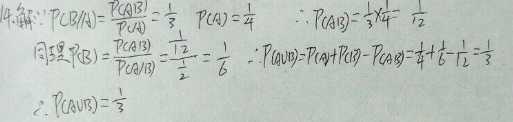 14.解:∵P(B/A)=P(AB)/P(A)=1/3 P(A)=1/4 ∴P(AB)=1/3×1/4=1/12
同理P(B)=P(AB)/P(A/B)=(1/12)/(1/2)=1/6 ∴P(AUB)=P(A)+P(B)-P(AB)=1/4+1/6-1/12=1/3
∴P(AUB)=1/3